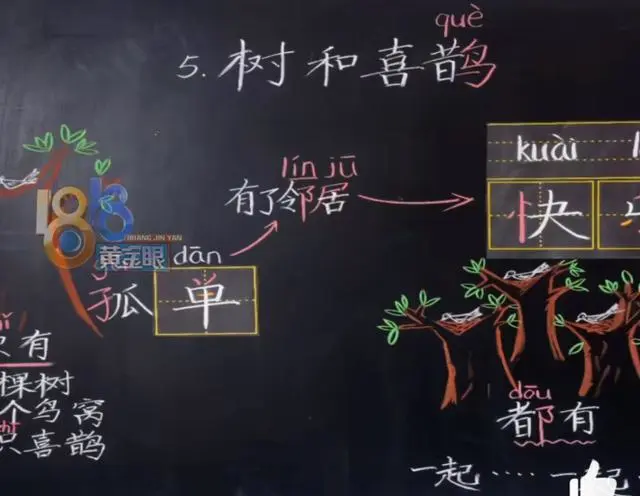 què
5. 树和喜鹊
lín jū
有了邻居
kuài
快
1818
HUANG JIN YAN
黄金眼
dān
孤单
有
棵树
个鸟窝
只喜鹊
dōu
都有
一起……一起